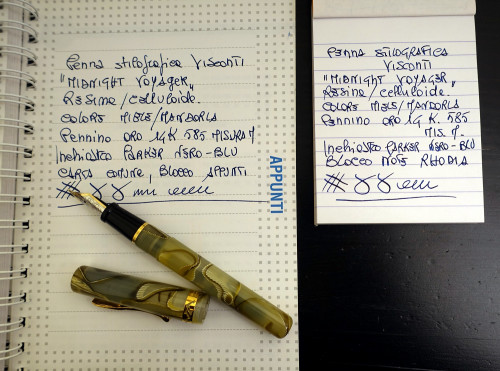 Penna stilografica Visconti
"Midnight Voyager"
Resina/celluloide.
Colore miele/mandorla
Pennino oro 14 K 585 misura M
Inchiostro Parker nero-blu
Carta comune, blocco appunti
APPUNTI
Penna stilografica
Visconti
"Midnight Voyager"
Resina/celluloide.
Colore miele/mandorla
Pennino oro 14 K. 585
mis. M.
Inchiostro Parker nero-blu
Blocco note Rhodia